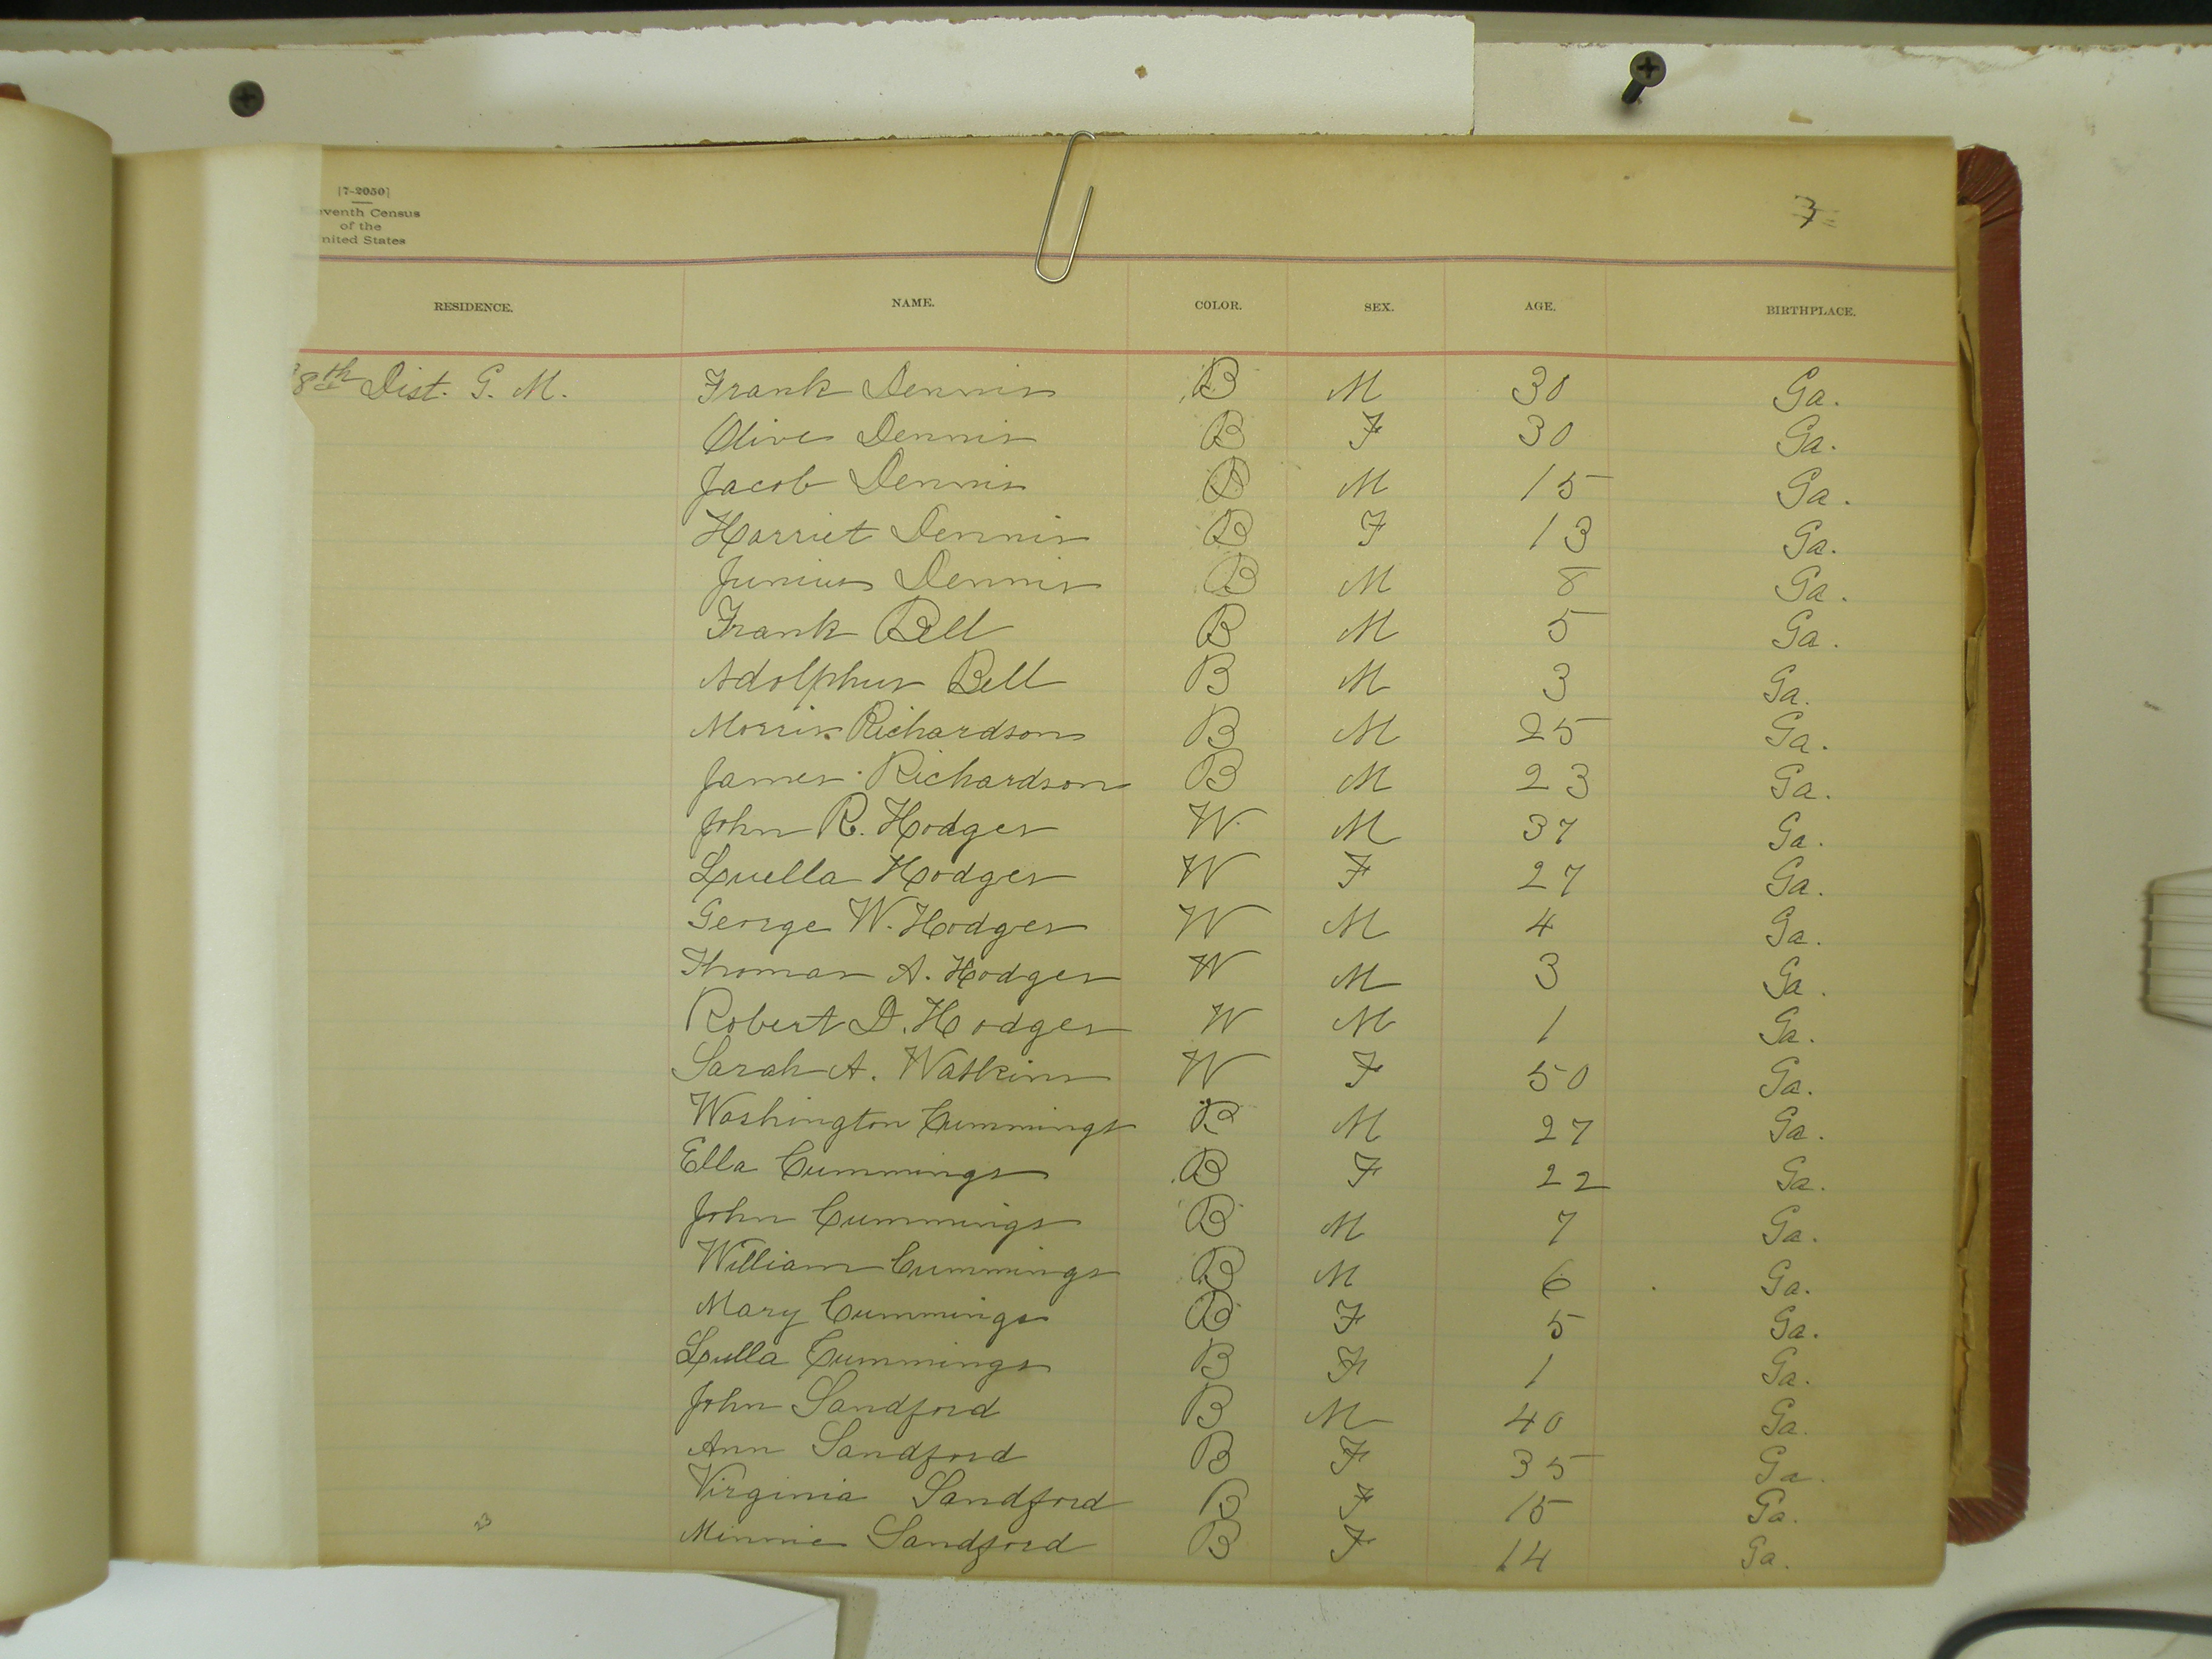 [7-2050]
eventh Census
of the
nited States
3
RESIDENCE. NAME. COLOR. SEX. AGE. BIRTHPLACE.
8th Dist. G. M. Frank Dennis B M 30 Ga.
Olive Dennis B F 30 Ga.
Jacob Dennis B M 15 Ga.
Harriet Dennis B F 13 Ga.
Junius Dennis B M 8 Ga.
Frank Bell B M 5 Ga.
Adolphus Bell B M 3 Ga.
Morris Richardson B M 25 Ga.
James Richardson B M 23 Ga.
John R. Hodges W M 37 Ga.
Luella Hodges W F 27 Ga.
George W. Hodges W M 4 Ga.
Thomas A. Hodges W M 3 Ga.
Robert D. Hodges W M 1 Ga.
Sarah A. Watkins W F 50 Ga.
Washington Cummings B M 27 Ga.
Ella Cummings B F 22 Ga.
John Cummings B M 7 Ga.
William Cummings B M 6 Ga.
Mary Cummings B F 5 Ga.
Lulla Cummings B F 1 Ga.
John Sandford B M 40 Ga.
Ann Sandford B F 35 Ga.
Virginia Sandford B F 15 Ga.
Minnie Sandford B F 14 Ga.
23